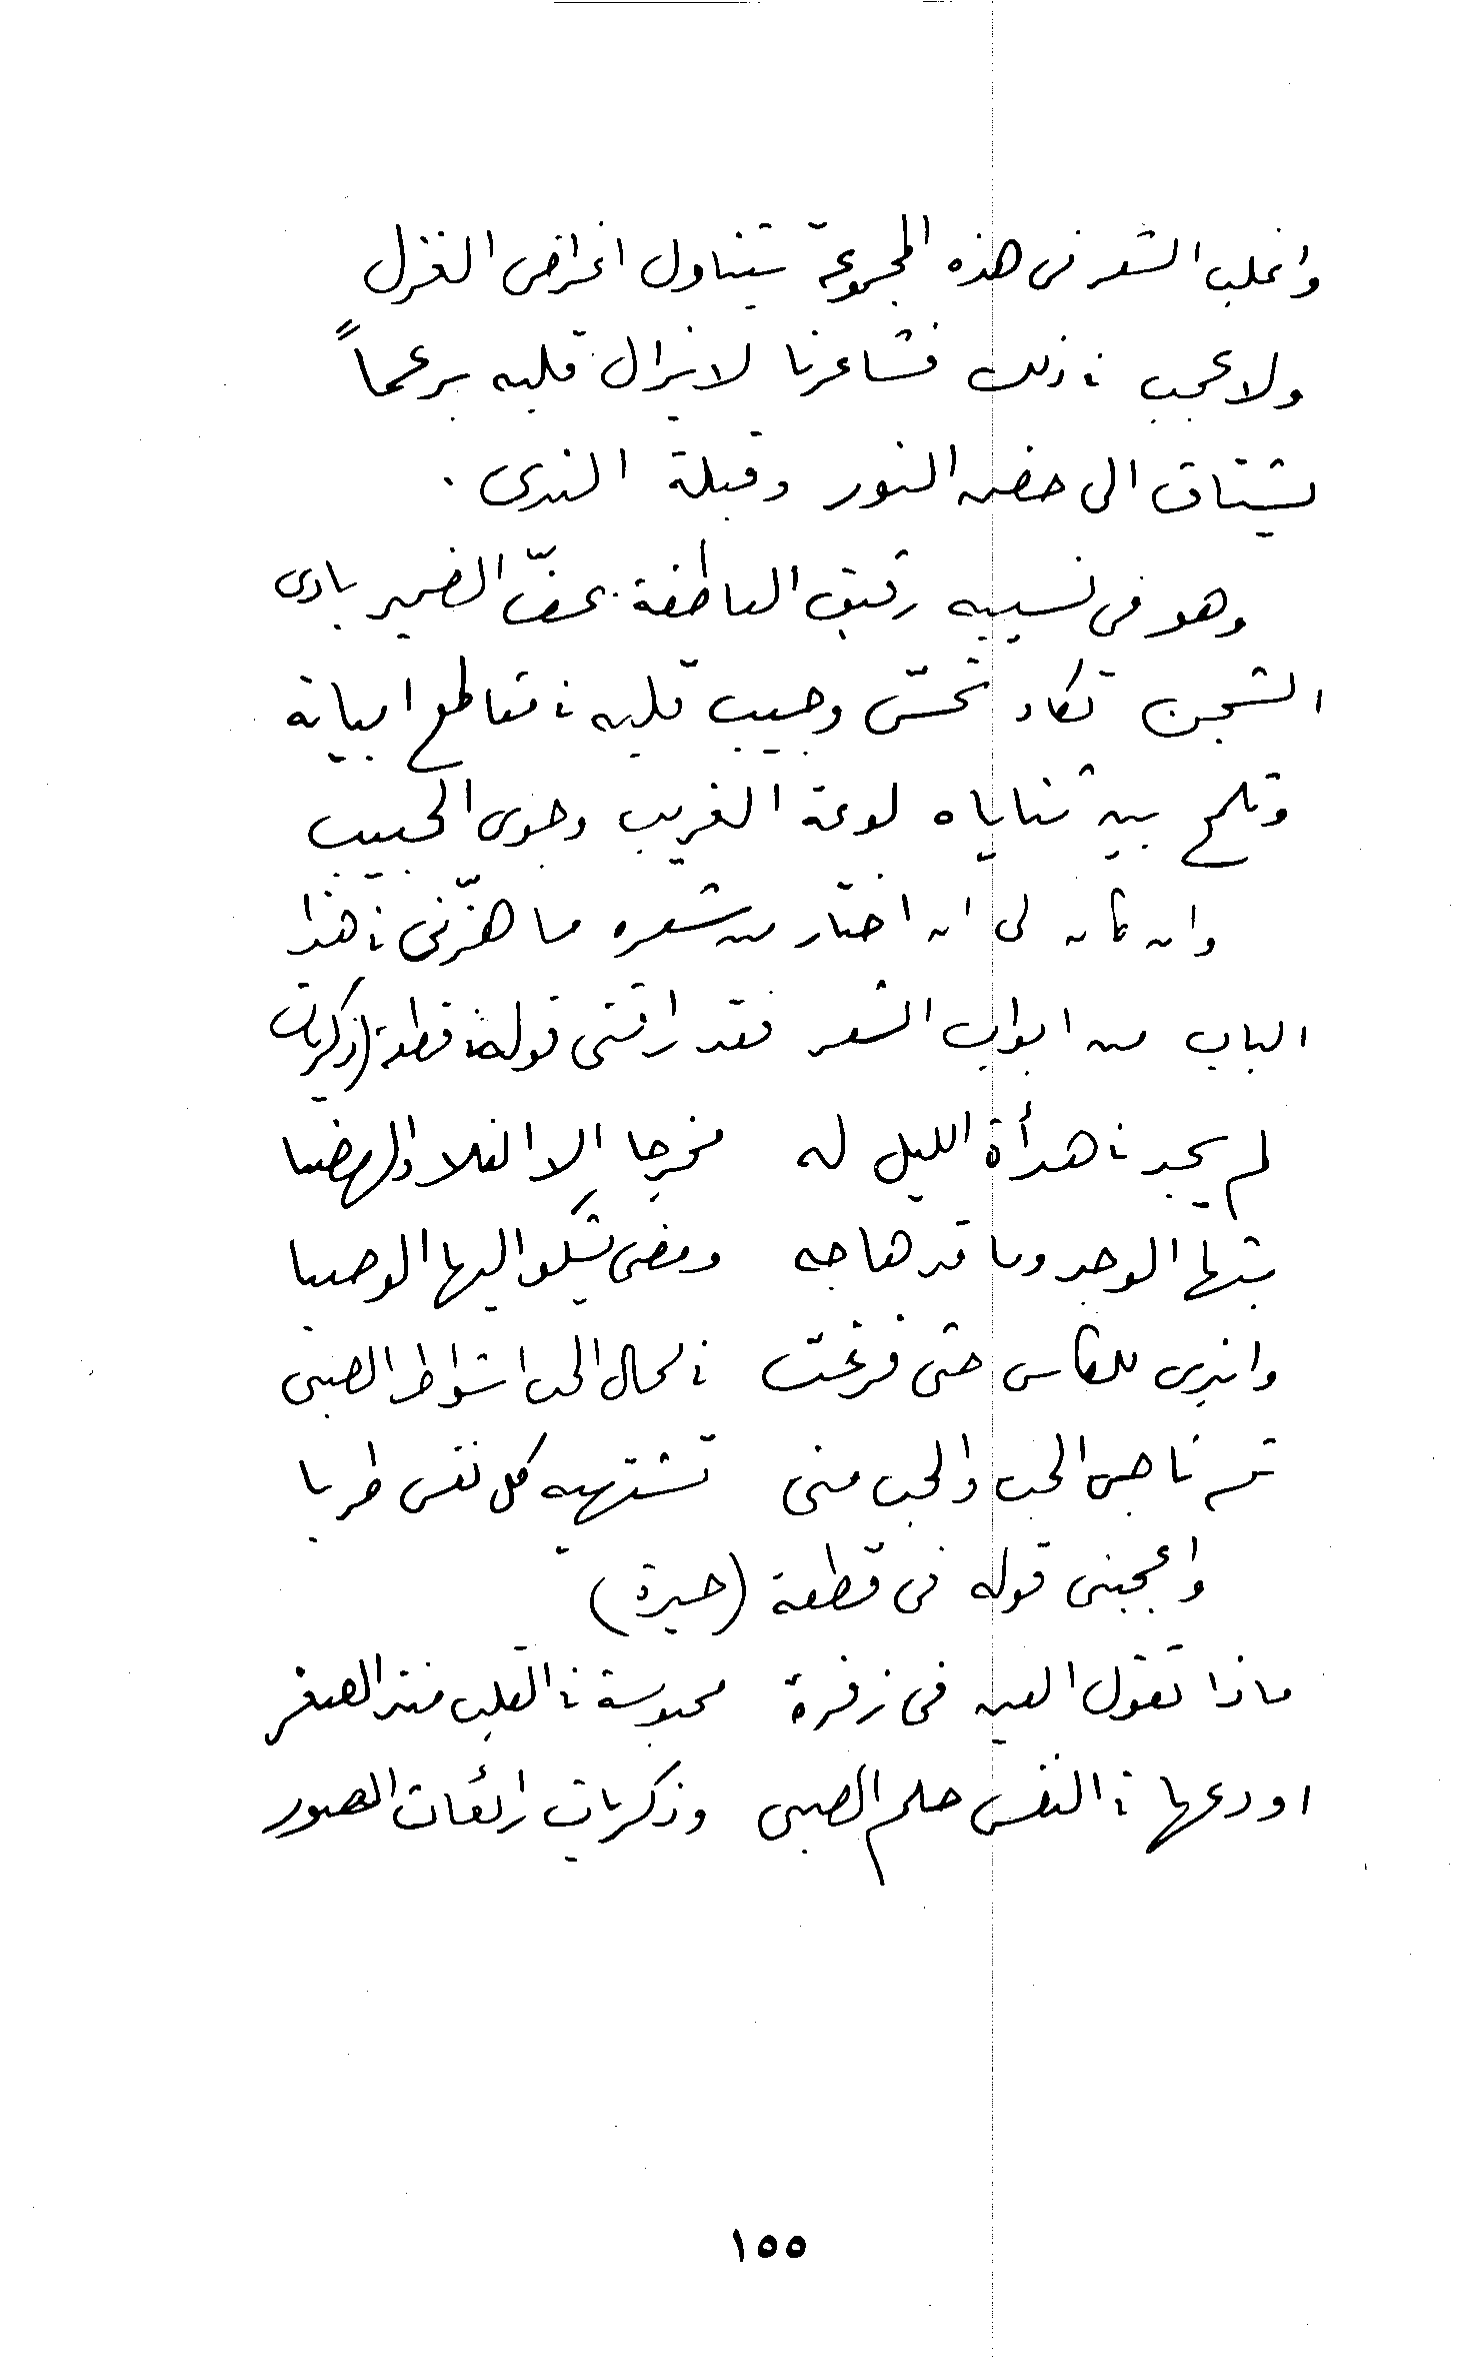 واغلب الشعر فى هذه المجموعة يتناول اغراض الغزل
ولا عجب فى ذلك فشاعرنا لا يزال قلبه برعماً
يشتاق الى حضن النور وقبلة الندى .
وهو فى نسيبه رقيق العاطفة عفّ الضمير بادى
الشجن تكاد تحسّ وجيب قلبه فى مقاطع ابياته
وتلمح بين ثناياه لوعة الغريب وجوى الحبيب
وان كان لى ان اختار من شعره ما هزّنى فى هذا
الباب من ابواب الشعر فقد راقتنى قوله فى قطعة (ذكريات
لم يجد فى هدأة الليل له مخرجا الا الفلا والهضبا
بثها الوجد وما قد هاجه ومضى يشكو اليها الوصبا
وانبرى للكاس حتى فرغت فى مجال الحب اشواط الصبى
ثم ناجى الحب والحب منى تشتهيه كل نفس طربا
واعجبنى قوله فى قطعة (حيرة)
ماذا تقول العين فى زفرة محبوسة فى القلب منذ الصغر
اودعها فى النفس حلم الصبى وذكريات رائعات الصور
١٥٥